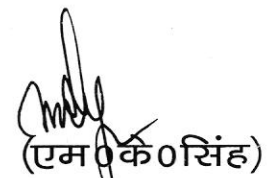 (एम०के०सिंह)